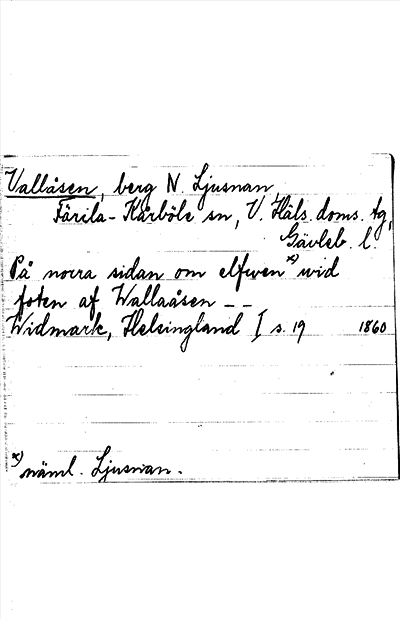 Vallåsen, berg N. Ljusnan,
Färila-Kårböle sn, V. Häls. doms. tg,
Gävleb. l.
På norra sidan om elfwen x) wid
foten af Wallaåsen - -
Widmark, Helsingland I s. 19 1860
x) näml. Ljusnan.